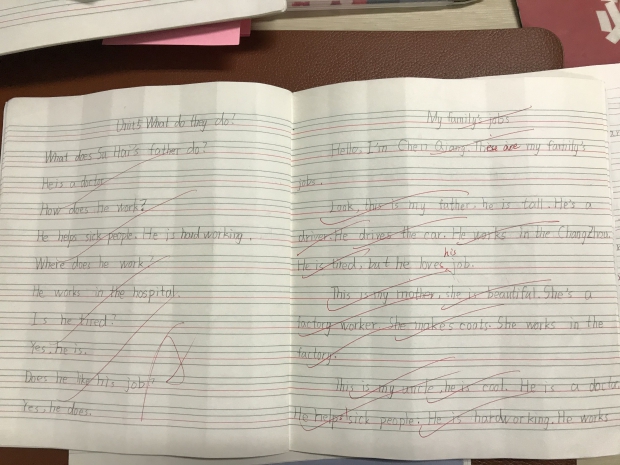 Unit5 What do they do?
What does Su Hai's father do?
He is a doctor.
How does he work?
He helps sick people. He is hard working.
Where does he work?
He works in the hospital.
Is he tired?
Yes, he is.
Does he like his job?
Yes, he does.
My family's jobs
Hello, I'm Chen Qiang. These are my family's
jobs.
Look, this is my father, he is tall. He's a
driver. He drives the car. He works in the ChangZhou.
He is tired, but he loves his job.
This is my mother, she is beautiful. She's a
factory worker. She makes coats. She works in the
factory.
This is my uncle, he is cool. He is a doctor.
He helps sick people. He is hardworking. He works